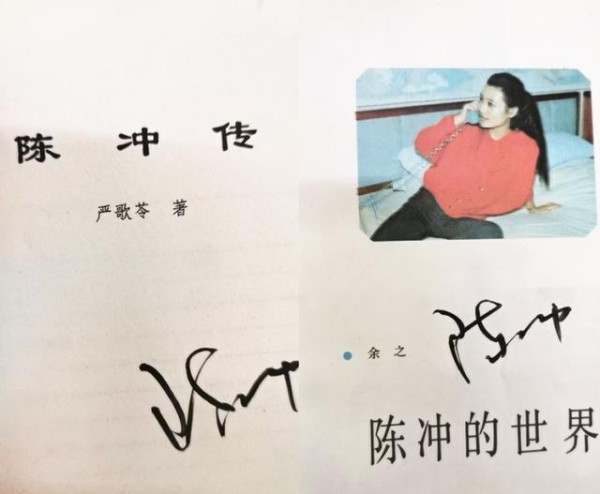 陈冲传
严歌苓 著
陈冲
余之
陈冲
陈冲的世界